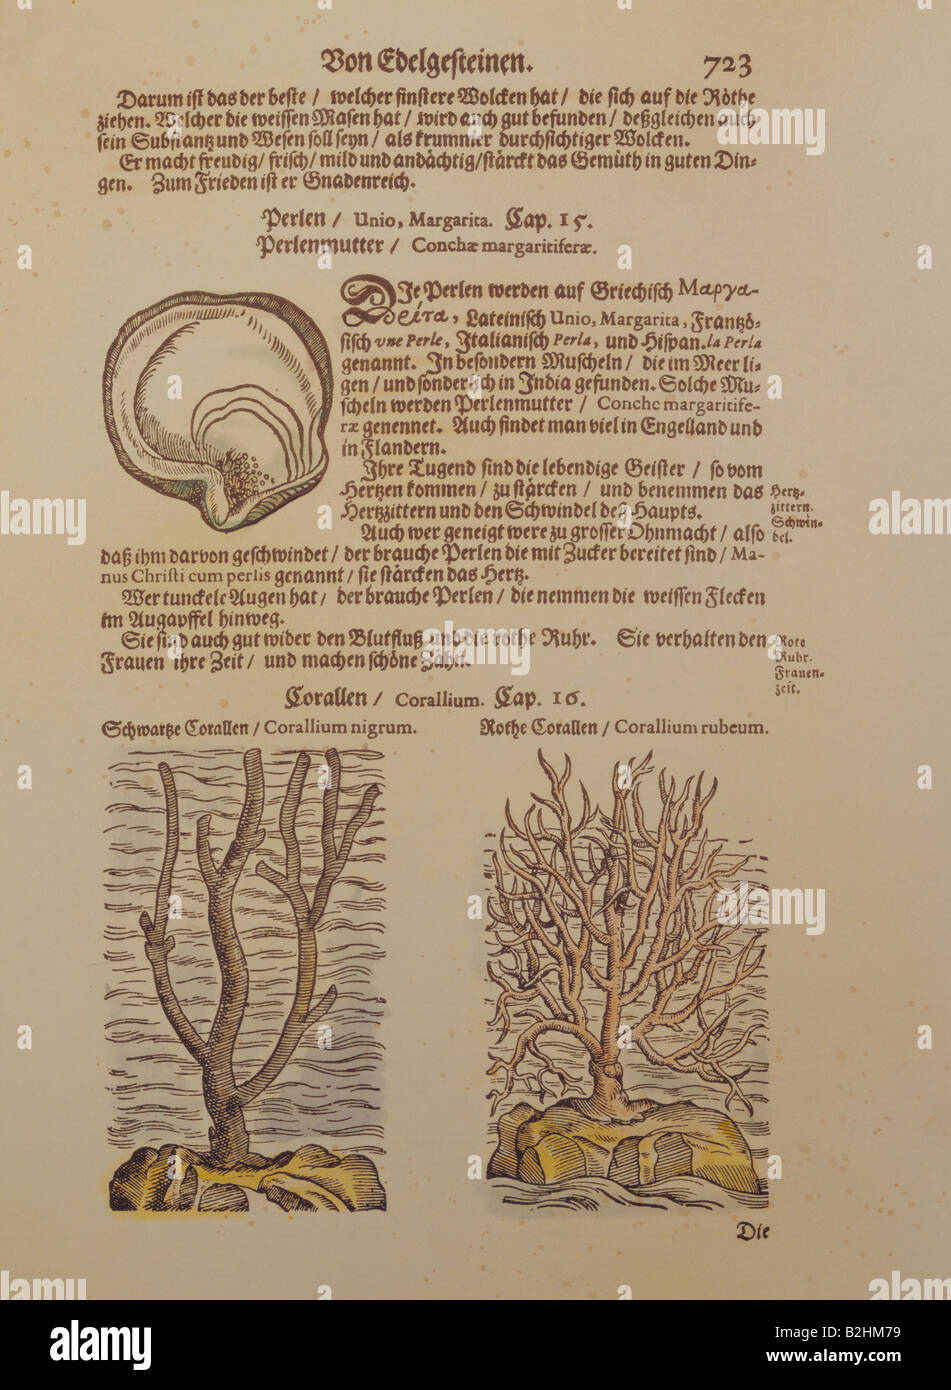 Von Edelgesteinen. 723
Darum ist das der beste / welcher finstere Wolcken hat / die sich auf die Röthe
ziehen. Welcher die weissen Masen hat / wird auch gut befunden / deßgleichen auch
sein Substantz und Wesen soll seyn / als krummer durchsichtiger Wolcken.
Er macht freudig / frisch / mild und andächtig / stärckt das Gemüth in guten Din-
gen. Zum Frieden ist er Gnadenreich.
Perlen / Unio, Margarita. Cap. 15.
Perlenmutter / Conchæ margaritiferæ.
DJe Perlen werden auf Griechisch Μαργα-
ρείτα, Lateinisch Unio, Margarita, Frantzö-
sisch vne Perle, Jtalianisch Perla, und Hispan. la Perla
genannt. Jn besondern Muscheln / die im Meer li-
gen / und sonderlich in Jndia gefunden. Solche Mu-
scheln werden Perlenmutter / Conchę margaritife-
ræ genennet. Auch findet man viel in Engelland und
in Flandern.
Jhre Tugend sind die lebendige Geister / so vom
Hertzen kommen / zu stärcken / und benemmen das
Hertzzittern und den Schwindel deß Haupts.
Hertz-
zittern.
Schwin-
del.
Auch wer geneigt were zu grosser Ohnmacht / also
daß ihm darvon geschwindet / der brauche Perlen die mit Zucker bereitet sind / Ma-
nus Christi cum perlis genannt / sie stärcken das Hertz.
Wer tunckele Augen hat / der brauche Perlen / die nemmen die weissen Flecken
im Augapffel hinweg.
Sie sind auch gut wider den Blutfluß und die rothe Ruhr. Sie verhalten den
Frauen ihre Zeit / und machen schöne Zähn.
Rote
Ruhr.
Frauen-
zeit.
Corallen / Corallium. Cap. 16.
Schwartze Corallen / Corallium nigrum.
Rothe Corallen / Corallium rubeum.
Die
alamy
Image ID: B2HM79
www.alamy.com